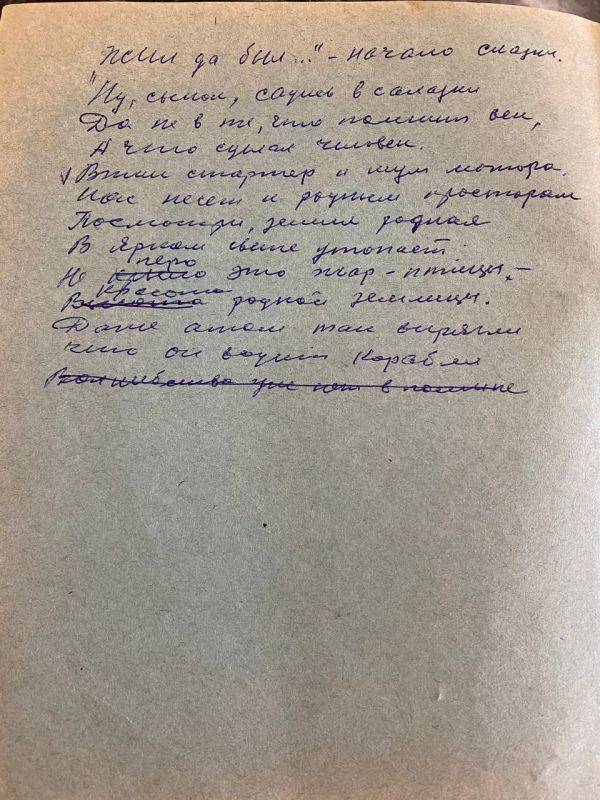 "Жил да был..." – начало сказки.
"Ну, сынок, садись в салазки
Да не в те, что помнит век,
А что сделал человек.
√ Вжик стартер и шум мотора.
Нас несет к родным просторам
Посмотри, земля родная
В ярком свете утопает.
перо
Не крыло это жар-птицы, –
Красота
Высота родной землицы.
Даже атом так впрягли
что он водит корабли
Волшебства уж нет в помине